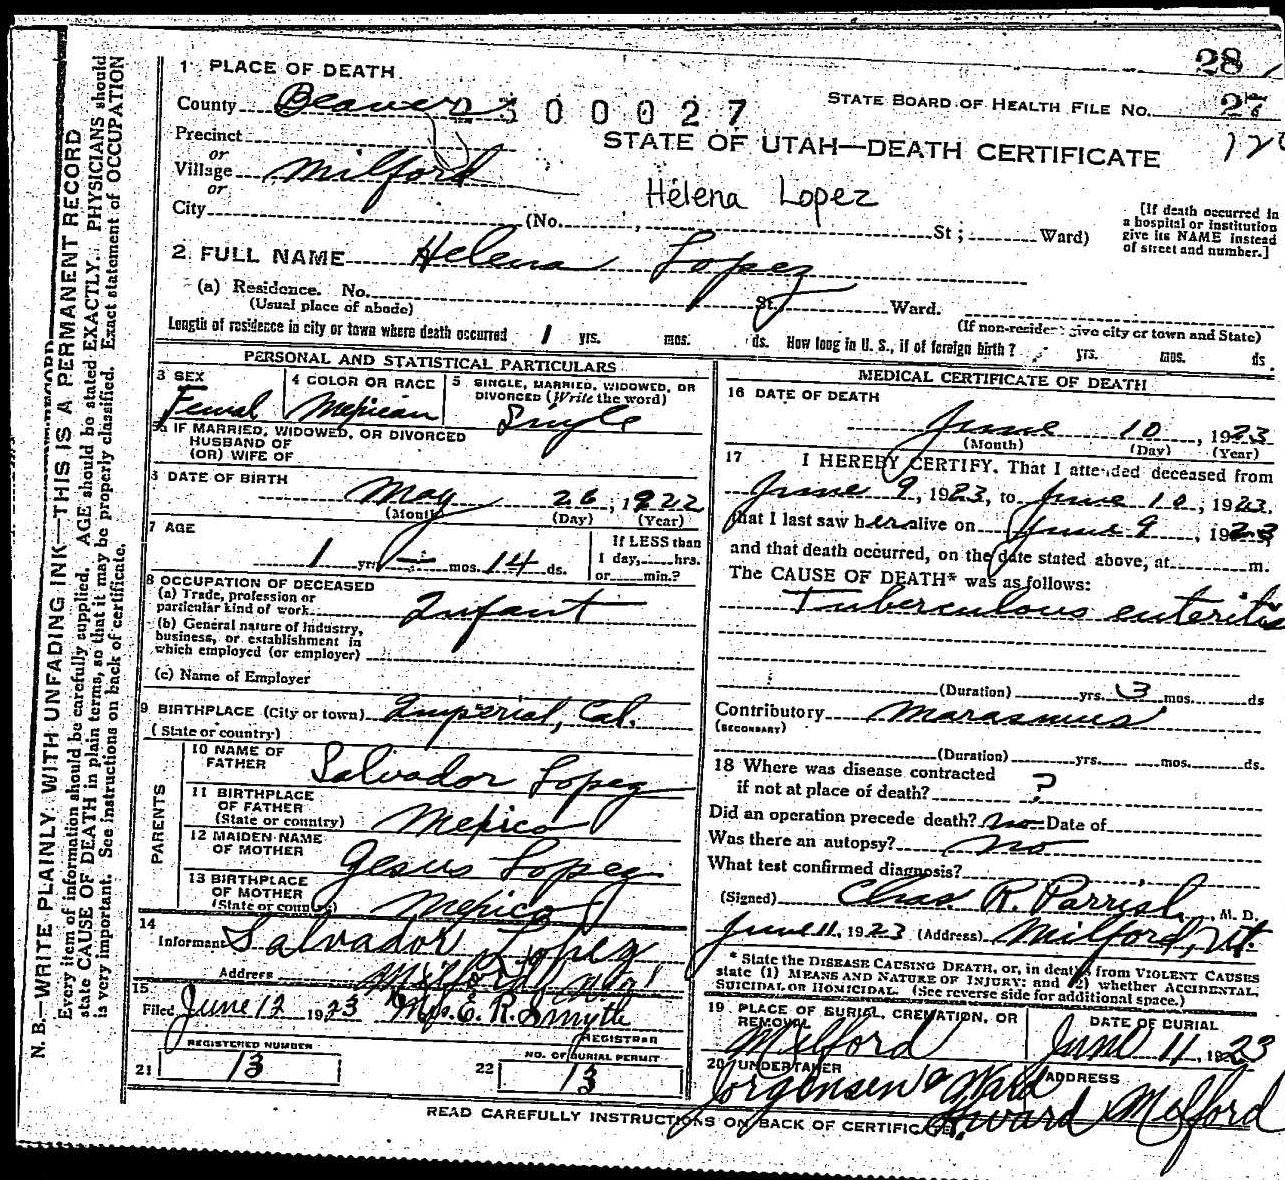 28
1 PLACE OF DEARTH
County Beaver 300027 STATE BOARD OF HEALTH FILE No. 27
Precinct STATE OF UTAH—DEATH CERTIFICATE
or
Village Milford
or Helena Lopez
City (No. , St ; Ward)
[If death occurred in
a hospital or institution
give its NAME instead
of street and number.]
2 FULL NAME Helena Lopez
(a) Residence. No. St. Ward.
(Usual place of abode)
(If non-resident give city or town and State)
Length of residence in city or town where death occurred 1 yrs. mos. ds. How long in U. S., if of foreign birth? yrs. mos. ds.
PERSONAL AND STATISTICAL PARTICULARS
3 SEX 4 COLOR OR RACE 5 SINGLE, MARRIED, WIDOWED, OR
DIVORCED (Write the word)
Femal Mexican Single
5a IF MARRIED, WIDOWED, OR DIVORCED
HUSBAND OF
(OR) WIFE OF
6 DATE OF BIRTH
May 26, 1922
(Month) (Day) (Year)
7 AGE
If LESS than
1 day, hrs.
or min.?
1 yrs — mos. 14 ds.
8 OCCUPATION OF DECEASED
(a) Trade, profession or
particular kind of work Infant
(b) General nature of industry,
business, or establishment in
which employed (or employer)
(c) Name of Employer
9 BIRTHPLACE (City or town) Imperial, Cal.
(State or country)
PARENTS
10 NAME OF
FATHER Salvador Lopez
11 BIRTHPLACE
OF FATHER
(State or country) Mexico
12 MAIDEN NAME
OF MOTHER Jesus Lopez
13 BIRTHPLACE
OF MOTHER
(State or country) Mexico
14
Informant Salvador Lopez
Address Milford
15
Filed June 12 1923 Mrs. E. R. Smyth
REGISTRAR
REGISTERED NUMBER
21 13
NO. OF BURIAL PERMIT
22 13
MEDICAL CERTIFICATE OF DEATH
16 DATE OF DEATH
June 10, 1923
(Month) (Day) (Year)
17 I HEREBY CERTIFY, That I attended deceased from
June 9, 1923, to June 10, 1923,
that I last saw her alive on June 9, 1923,
and that death occurred, on the date stated above, at m.
The CAUSE OF DEATH* was as follows:
Tuberculous enteritis
(Duration) yrs. 3 mos. ds
Contributory Marasmus
(SECONDARY)
(Duration) yrs. mos. ds.
18 Where was disease contracted
if not at place of death? ?
Did an operation precede death? no Date of
Was there an autopsy? no
What test confirmed diagnosis?
(Signed) Chas. R. Parrish, M. D.
June 11, 1923 (Address) Milford, Ut.
* State the DISEASE CAUSING DEATH, or, in deaths from VIOLENT CAUSES
state (1) MEANS AND NATURE OF INJURY; and (2) whether ACCIDENTAL,
SUICIDAL OR HOMICIDAL. (See reverse side for additional space.)
19 PLACE OF BURIAL, CREMATION, OR
REMOVAL
Milford
DATE OF BURIAL
June 11 1923
20 UNDERTAKER
Jorgensen & Ward
ADDRESS
Milford
READ CAREFULLY INSTRUCTIONS ON BACK OF CERTIFICATE.
N. B.—WRITE PLAINLY, WITH UNFADING INK—THIS IS A PERMANENT RECORD
Every item of information should be carefully supplied. AGE should be stated EXACTLY. PHYSICIANS should
state CAUSE OF DEATH in plain terms, so that it may be properly classified. Exact statement of OCCUPATION
is very important. See instructions on back of certificate.